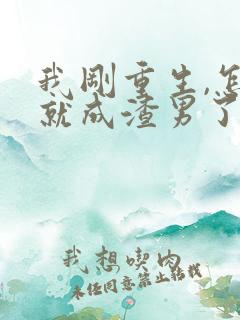 我刚重生,怎
就成渣男了
我想喫肉
未经同意禁止转载